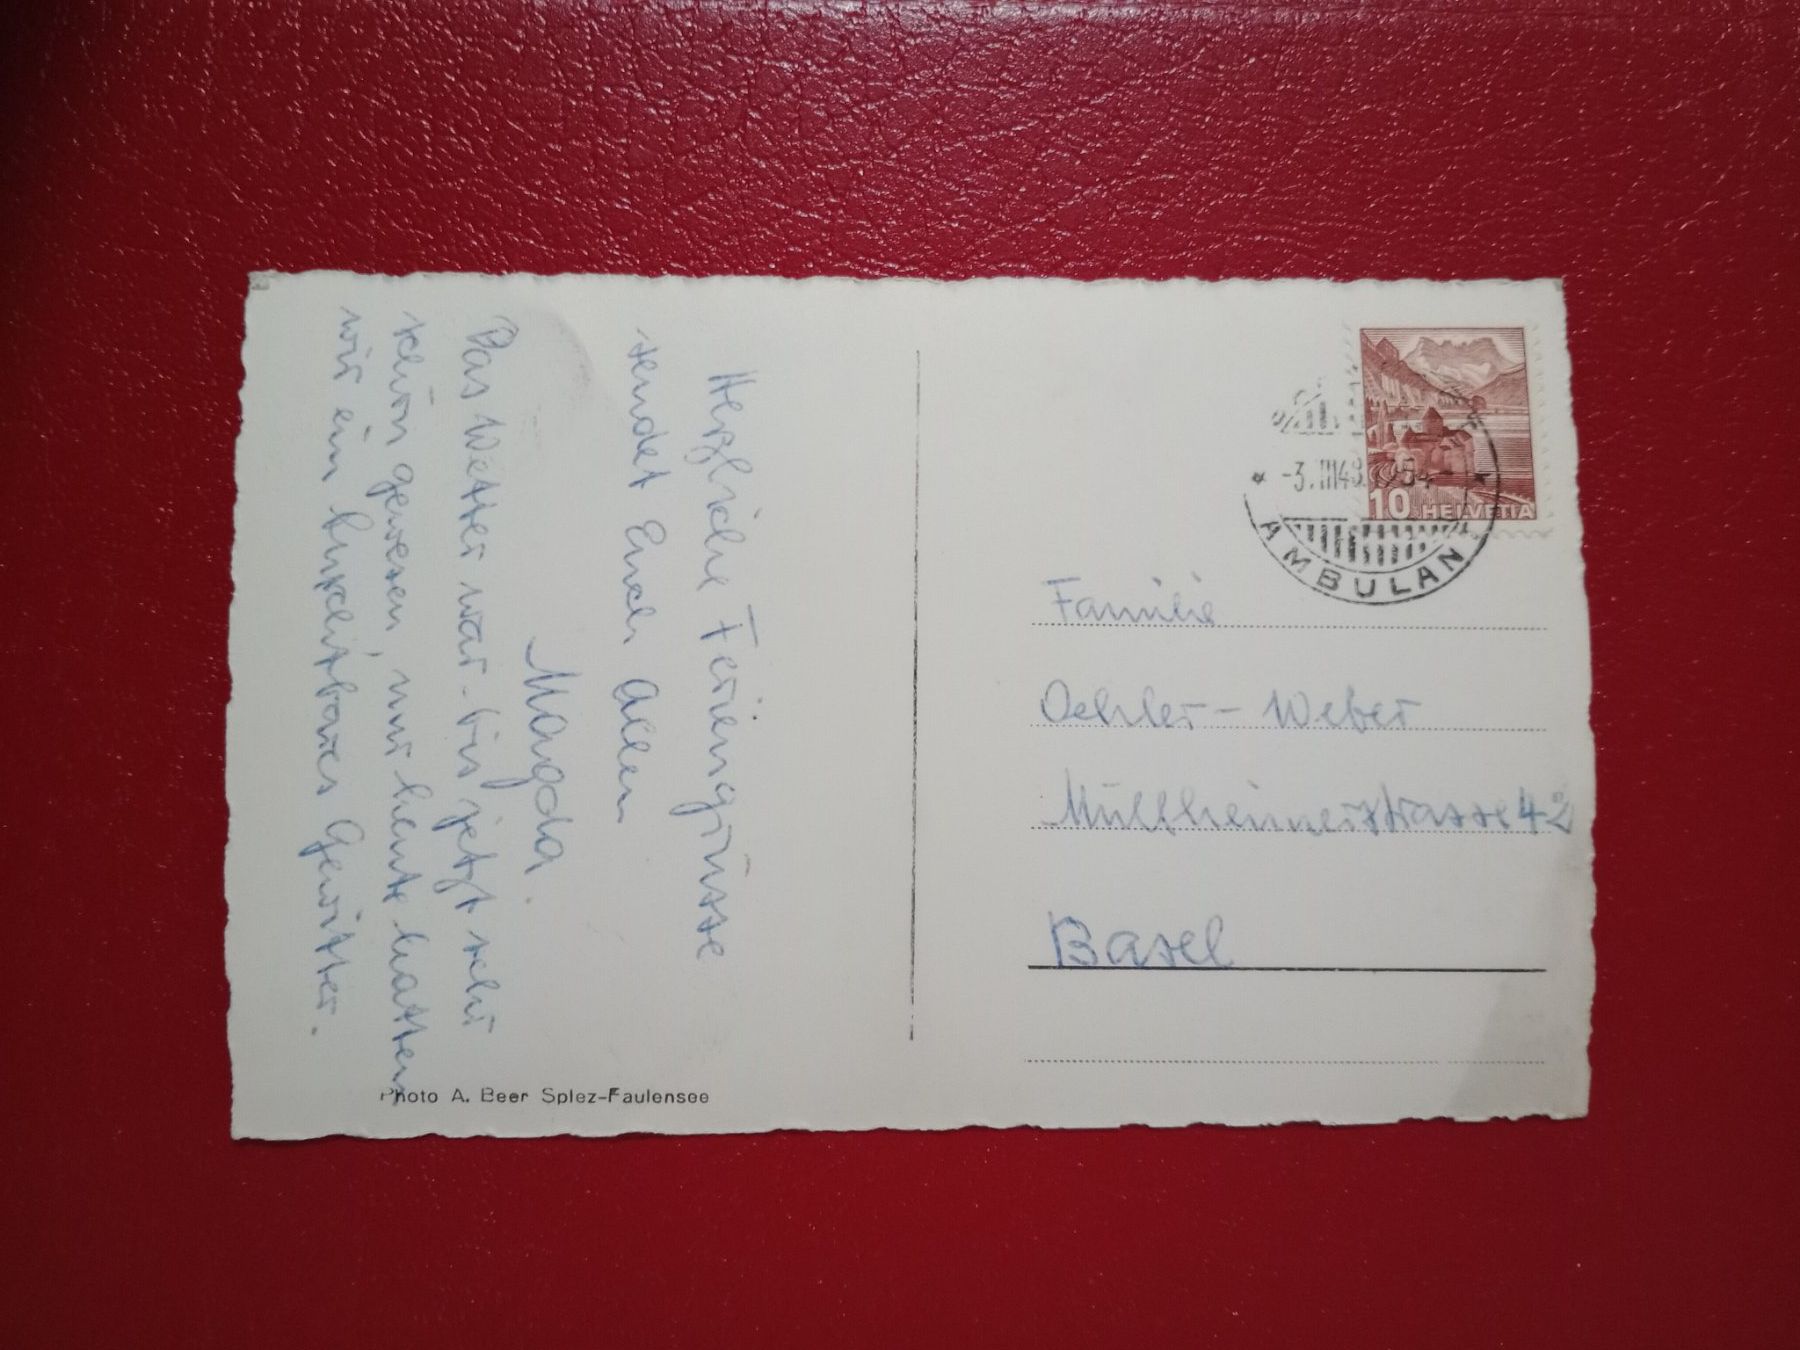 Herzliche Feriengrüsse
sendet Euch Allen
Magda.
Das Wetter war - bis jetzt sehr
schön gewesen, nur heute hatten
wir ein furchtbares Gewitter.
Photo A. Beer Spiez-Faulensee
10 HELVETIA
-3.III48.
AMBULANT
Familie
Oehler - Weber
Müllheimerstrasse 42
Basel